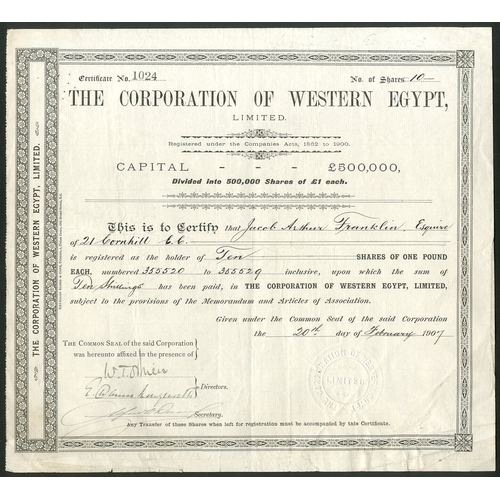 Certificate No. 1024
No. of Shares 10—
THE CORPORATION OF WESTERN EGYPT,
LIMITED.
Registered under the Companies Acts, 1862 to 1900.
CAPITAL - - - £500,000,
Divided into 500,000 Shares of £1 each.
This is to Certify that Jacob Arthur Franklin, Esquire
of 21 Cornhill E.C.
is registered as the holder of Ten SHARES OF ONE POUND
EACH, numbered 355520 to 355529 inclusive, upon which the sum of
Ten Shillings has been paid, in THE CORPORATION OF WESTERN EGYPT, LIMITED,
subject to the provisions of the Memorandum and Articles of Association.
Given under the Common Seal of the said Corporation
the 20th day of February 1907
THE COMMON SEAL of the said Corporation
was hereunto affixed in the presence of
Directors.
Secretary.
Any Transfer of these Shares when left for registration must be accompanied by this Certificate.
THE CORPORATION OF WESTERN EGYPT, LIMITED.
LIMITED